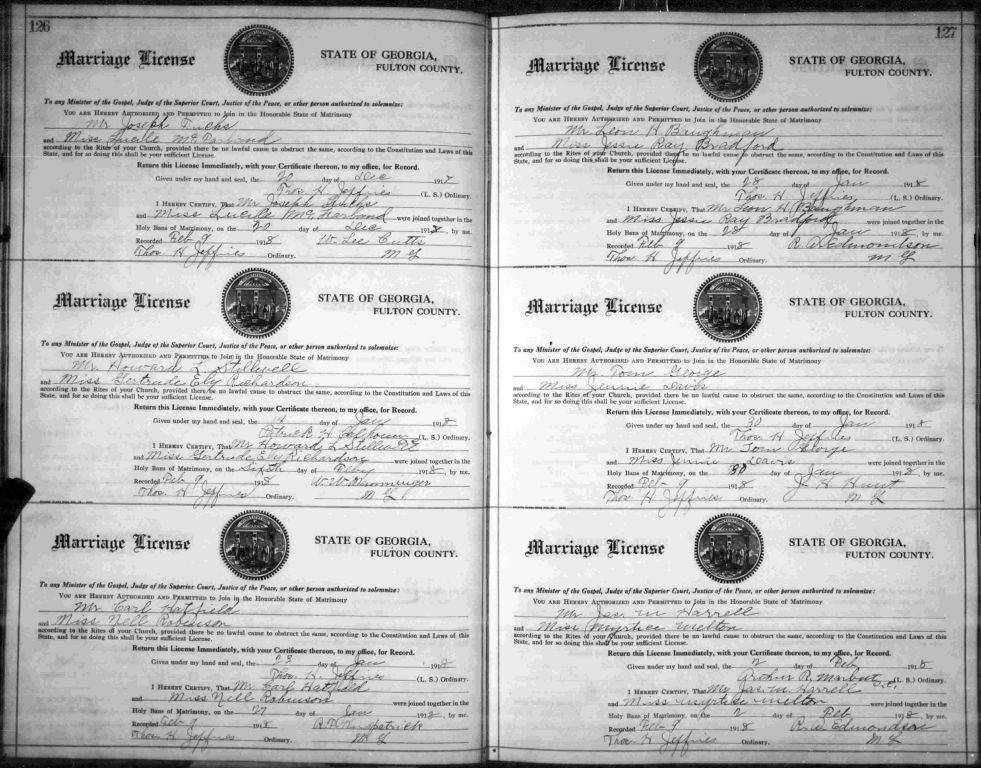 126
Marriage License
STATE OF GEORGIA,
FULTON COUNTY.
To any Minister of the Gospel, Judge of the Superior Court, Justice of the Peace, or other person authorized to solemnize:
YOU ARE HEREBY AUTHORIZED AND PERMITTED to Join in the Honorable State of Matrimony
Mr Joseph Fuchs
and Miss Lucile McFarland
according to the Rites of your Church, provided there be no lawful cause to obstruct the same, according to the Constitution and Laws of this
State, and for so doing this shall be your sufficient License.
Return this License Immediately, with your Certificate thereon, to my office, for Record.
Given under my hand and seal, the 20 day of Dec 1917
Thos H Jeffries (L. S.) Ordinary.
I HEREBY CERTIFY, That Mr Joseph Fuchs
and Miss Lucile McFarland were joined together in the
Holy Bans of Matrimony, on the 20 day of Dec 191 , by me.
Recorded Feb 9 1918 W. Lee Cutts
Thos H Jeffries Ordinary. M G
Marriage License
STATE OF GEORGIA,
FULTON COUNTY.
To any Minister of the Gospel, Judge of the Superior Court, Justice of the Peace, or other person authorized to solemnize:
YOU ARE HEREBY AUTHORIZED AND PERMITTED to Join in the Honorable State of Matrimony
Mr. Howard L Stillwell
and Miss Gertrude Ely Richardson
according to the Rites of your Church, provided there be no lawful cause to obstruct the same, according to the Constitution and Laws of this
State, and for so doing this shall be your sufficient License.
Return this License Immediately, with your Certificate thereon, to my office, for Record.
Given under my hand and seal, the 4 day of Jan 1918
Patrick H Calhoun (L. S.) Ordinary.
I HEREBY CERTIFY, That Mr Howard L Stillwell
and Miss Gertrude Ely Richardson were joined together in the
Holy Bans of Matrimony, on the Sixth day of Feby 1918, by me.
Recorded Feb 9 1918 W. W. Memminger
Thos. H Jeffries Ordinary. M G
Marriage License
STATE OF GEORGIA,
FULTON COUNTY.
To any Minister of the Gospel, Judge of the Superior Court, Justice of the Peace, or other person authorized to solemnize:
YOU ARE HEREBY AUTHORIZED AND PERMITTED to Join in the Honorable State of Matrimony
Mr. Carl Hatfield
and Miss Nell Robinson
according to the Rites of your Church, provided there be no lawful cause to obstruct the same, according to the Constitution and Laws of this
State, and for so doing this shall be your sufficient License.
Return this License Immediately, with your Certificate thereon, to my office, for Record.
Given under my hand and seal, the 23 day of Jan 1918
Thos. H. Jeffries (L. S.) Ordinary.
I HEREBY CERTIFY, That Mr Carl Hatfield
and Miss Nell Robinson were joined together in the
Holy Bans of Matrimony, on the 27 day of Jan 1918, by me.
Recorded Feb 9 1918
Thos H Jeffries Ordinary. M G
127
Marriage License
STATE OF GEORGIA,
FULTON COUNTY.
To any Minister of the Gospel, Judge of the Superior Court, Justice of the Peace, or other person authorized to solemnize:
YOU ARE HEREBY AUTHORIZED AND PERMITTED to Join in the Honorable State of Matrimony
Mr Leon H Baughman
and Miss Jessie Ray Bradford
according to the Rites of your Church, provided there be no lawful cause to obstruct the same, according to the Constitution and Laws of this
State, and for so doing this shall be your sufficient License.
Return this License Immediately, with your Certificate thereon, to my office, for Record.
Given under my hand and seal, the 28 day of Jan 1918
Thos H Jeffries (L. S.) Ordinary.
I HEREBY CERTIFY, That Mr Leon H. Baughman
and Miss Jessie Ray Bradford were joined together in the
Holy Bans of Matrimony, on the 28 day of Jan 1918, by me.
Recorded Feb 9 1918 R. A. Edmondson
Thos H Jeffries Ordinary. M G
Marriage License
STATE OF GEORGIA,
FULTON COUNTY.
To any Minister of the Gospel, Judge of the Superior Court, Justice of the Peace, or other person authorized to solemnize:
YOU ARE HEREBY AUTHORIZED AND PERMITTED to Join in the Honorable State of Matrimony
Mr Tom George
and Miss Jennie Davis
according to the Rites of your Church, provided there be no lawful cause to obstruct the same, according to the Constitution and Laws of this
State, and for so doing this shall be your sufficient License.
Return this License Immediately, with your Certificate thereon, to my office, for Record.
Given under my hand and seal, the 30 day of Jan 1918
Thos H Jeffries (L. S.) Ordinary.
I HEREBY CERTIFY, That Mr Tom George
and Miss Jennie Davis were joined together in the
Holy Bans of Matrimony, on the 30 day of Jan 1918, by me.
Recorded Feb 9 1918 J H Hunt
Thos H Jeffries Ordinary. M G
Marriage License
STATE OF GEORGIA,
FULTON COUNTY.
To any Minister of the Gospel, Judge of the Superior Court, Justice of the Peace, or other person authorized to solemnize:
YOU ARE HEREBY AUTHORIZED AND PERMITTED to Join in the Honorable State of Matrimony
Mr Jas. M Harrell
and Miss Myrtice Melton
according to the Rites of your Church, provided there be no lawful cause to obstruct the same, according to the Constitution and Laws of this
State, and for so doing this shall be your sufficient License.
Return this License Immediately, with your Certificate thereon, to my office, for Record.
Given under my hand and seal, the 2 day of Feb 1918
R. Marbut (L. S.) Ordinary.
I HEREBY CERTIFY, That Mr Jas. M Harrell
and Miss Myrtice Melton were joined together in the
Holy Bans of Matrimony, on the 2 day of Feb 1918, by me.
Recorded Feb 9 1918 R. A. Edmondson
Thos H Jeffries Ordinary. M G